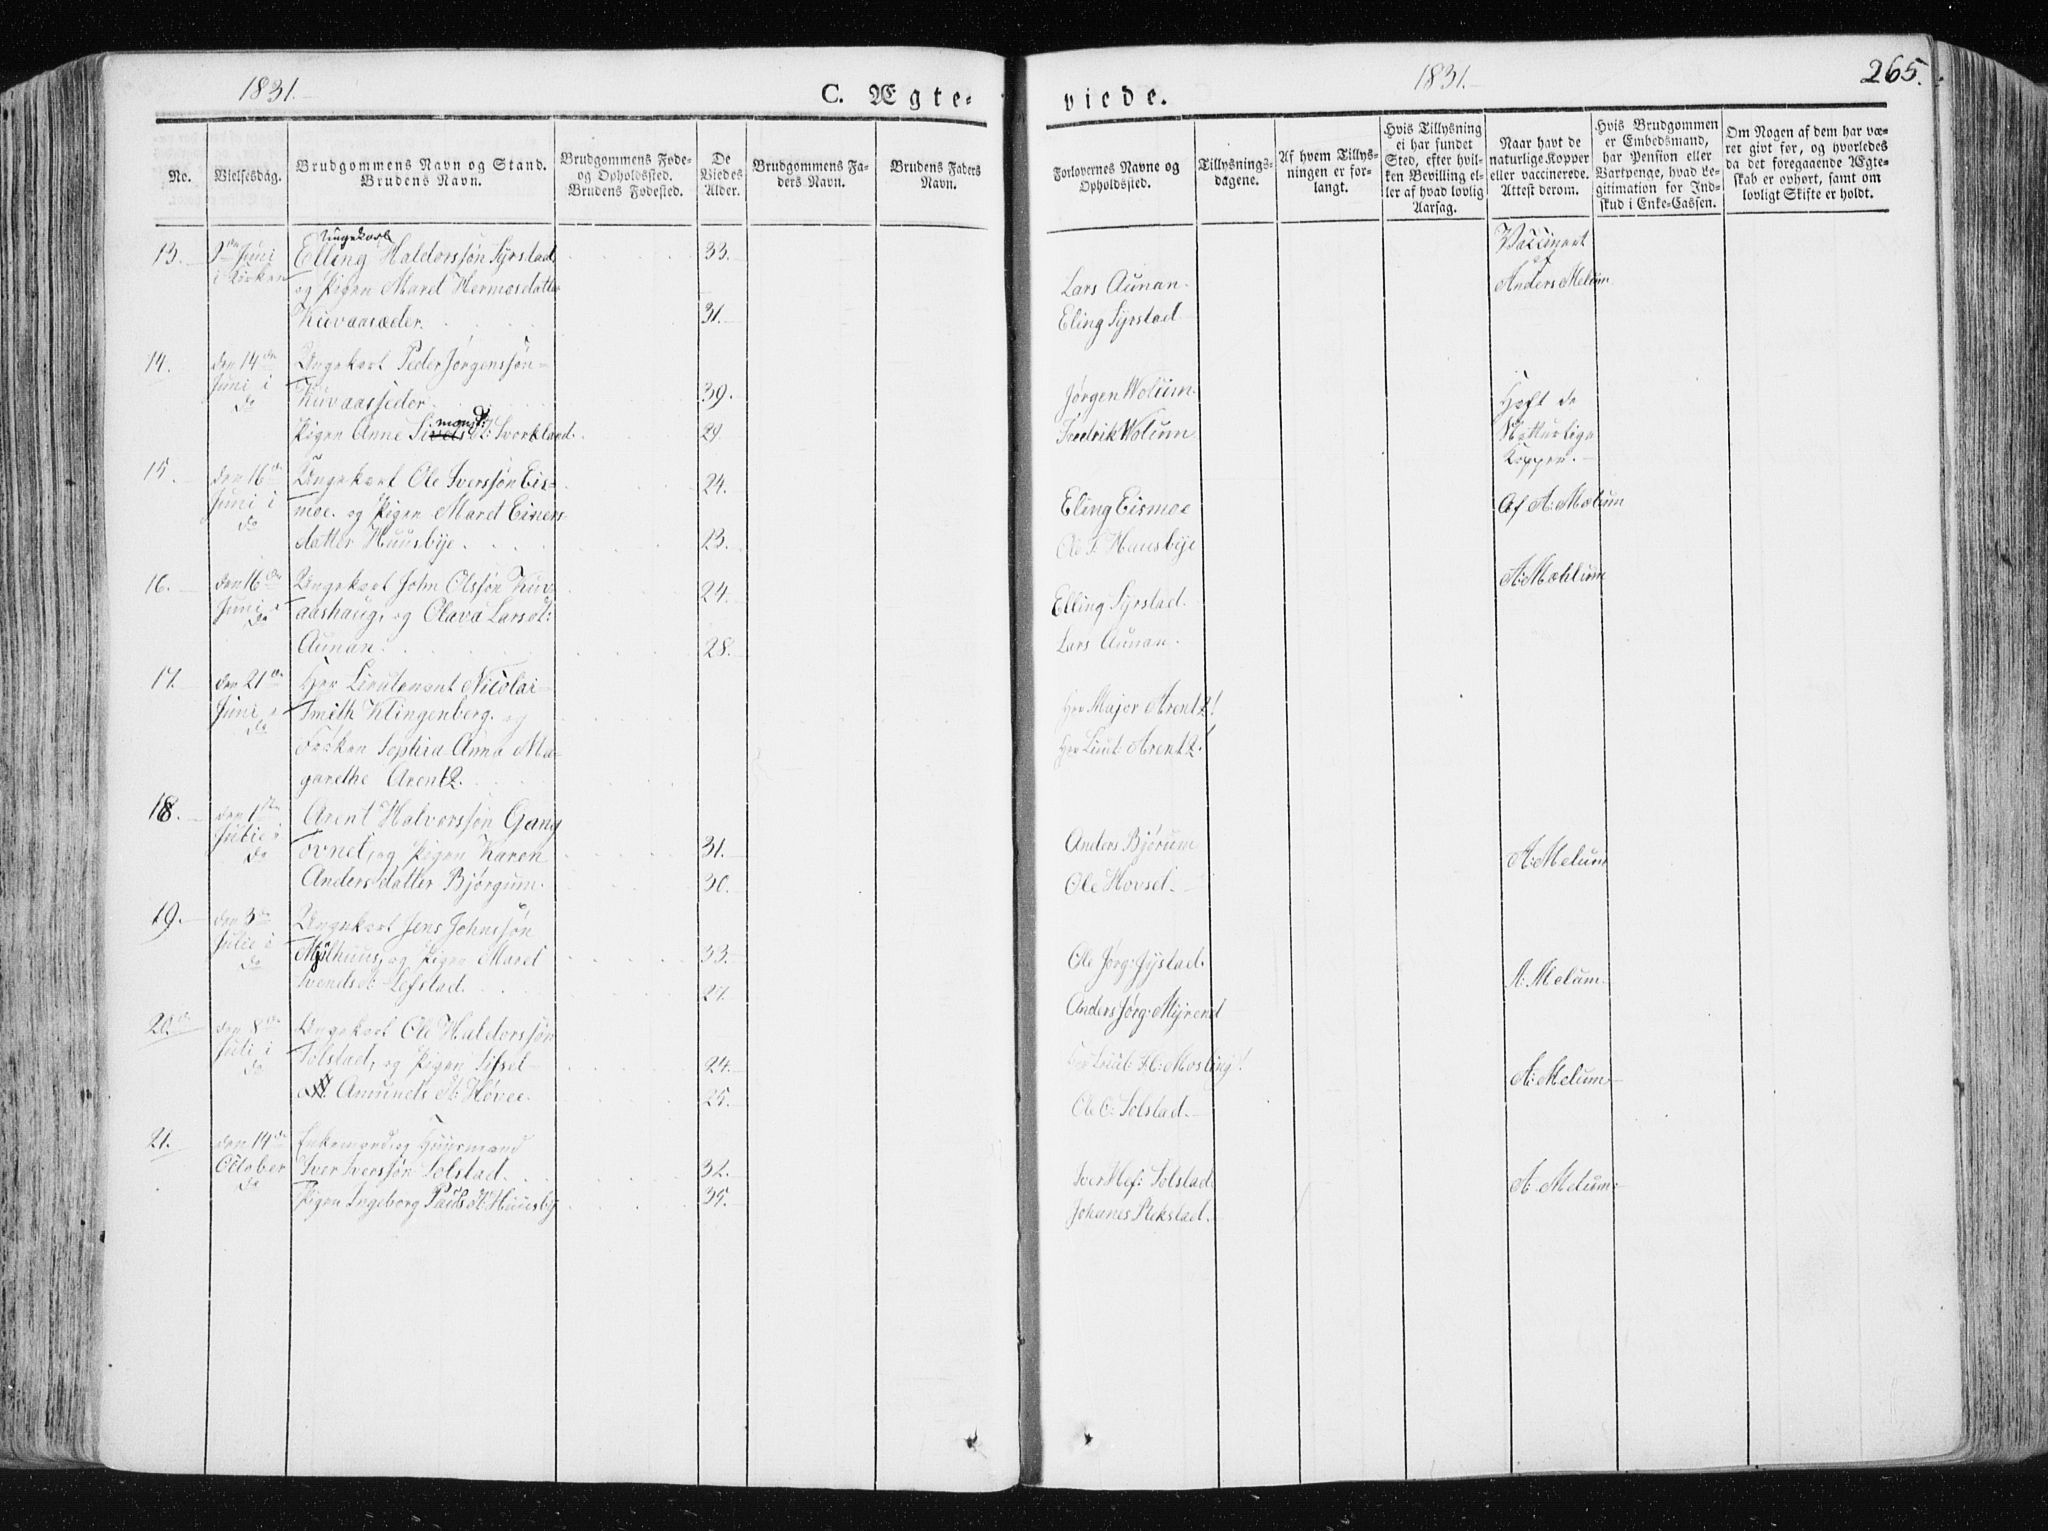 1831.
C. Ægte-
viede.
1831.
265.
No.
Vielsesdag.
Brudgommens Navn og Stand.
Brudens Navn.
Brudgommens Føde-
og Opholdssted.
Brudens Fødested.
De
Viedes
Alder.
Brudgommens Fa-
ders Navn.
Brudens Faders
Navn.
Forlovernes Navne og
Opholdssted.
Tillysnings-
dagene.
Af hvem Tillys-
ningen er for-
langt.
Hvis Tillysning
ei har fundet
Sted, efter hvil-
ken Bevilling el-
ler af hvad lovlig
Aarsag.
Naar havt de
naturlige Kopper
eller vaccinerede.
Attest derom.
Hvis Brudgommen
er Embedsmand,
har Pension eller
Vartpenge, hvad Le-
gitimation for Ind-
skud i Enke-Cassen.
Om Nogen af dem har væ-
ret gift før, og hvorledes
da det foregaaende Ægte-
skab er ophørt, samt om
lovligt Skifte er holdt.
13.
9de Juni
i Kirken
Ungekarl
Elling Haldorssøn Syrstad,
og Pigen Maret Hermosdatter
Kuvaasæder.
33.
31.
Lars Aunan.
Eling Syrstad
Vaccineret
af
Anders Melum
14.
den 14de
Juni i
do
Ungekarl Peder Jørgenssøn
Kuvaasseder
Pigen Anne Simonsd: Svorkland.
39.
29.
Jørgen Wolum.
Fredrik Wolum
Haft de
Naturlige
Kopper.
15.
den 16de
Juni i
do
Ungekarl Ole Iverssøn Eis-
moe. og Pigen Maret Einers-
datter Huusbye.
24.
23.
Eling Eismoe
Ole Huusbye
Af A: Mælum
16.
den 16de
Juni i
do
Ungekarl John Olssøn Kuv-
aashaug, og Olava Larsd:
Aunan.
24.
28.
Elling Syrstad.
Lars Aunan.
A: Mæhlum
17.
den 21de
Juni i
do
Herr Lieutenant Nicolai
Smith Klingenberg. og
Frøken Sophia Anna Ma-
garethe Arentz.
Herr Major Arentz!
Herr Lieut: Arentz!
18.
den 1ste
Julie i
do
Arent Halvorssøn Gang
ovnet, og Pigen Karen
Andersdatter Bjørgum.
31.
30.
Anders Bjørum
Ole Hovset.
A: Melum
19.
den 3de
Julie i
do
Ungekarl Jens Johnssøn
Mølhuus, og Pigen Maret
Svendsd: Lefstad.
33.
27.
Ole Jørg:
Anders Jørg: Myrend
A: Melum.
20.
den 8de
Juli i
do
Ungekarl Ole Haldorssøn
Solstad, og Pigen Sissel
Amundsd: Høvee.
24.
25.
Herr Lieut: H: Mosling!
Ole O: Solstad.
A: Melum
21.
den 14de
October
do
Enkemand og Huusmand
Iver Iverssøn Solstad.
Pigen Ingeborg Paulsd: Huusby
32.
35.
Iver Solstad.
Johanes Rekstad.
A: Melum.